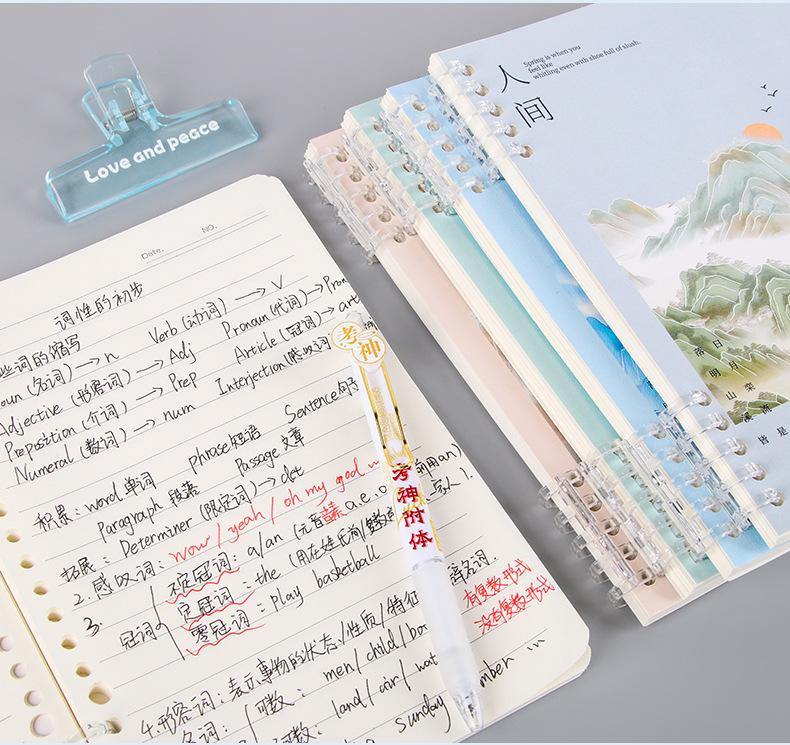 Love and peace
Date.
NO.
词性的初步
些词的缩写
oun (名词) → n Verb (动词) → V
Adjective (形容词) → Adj Pronoun (代词) → Pron
Preposition (介词) → Prep Article (冠词) → art
Numeral (数词) → num Interjection (感叹词)
积累: word 单词 phrase 短语 Sentence 句子
Paragraph 段落 Passage 文章
拓展: Determiner (限定词) → det
2. 感叹词: wow / yeah / oh my god ~
3. 冠词
不定冠词: a/an (元音 a.e.o 前用an)
定冠词: the (用在姓氏前
零冠词: play basketball
4. 形容词: 表示事物的状态 / 性质 / 特征
名词: 可数: men / child / bo
有复数形式
数: land / air / wat
没有复数形式
sunday
mber ...
考神
考神附体
人间
Spring is when you
feel like
whitling even with shoe full of slush.
落日
明月
山荣
皆是